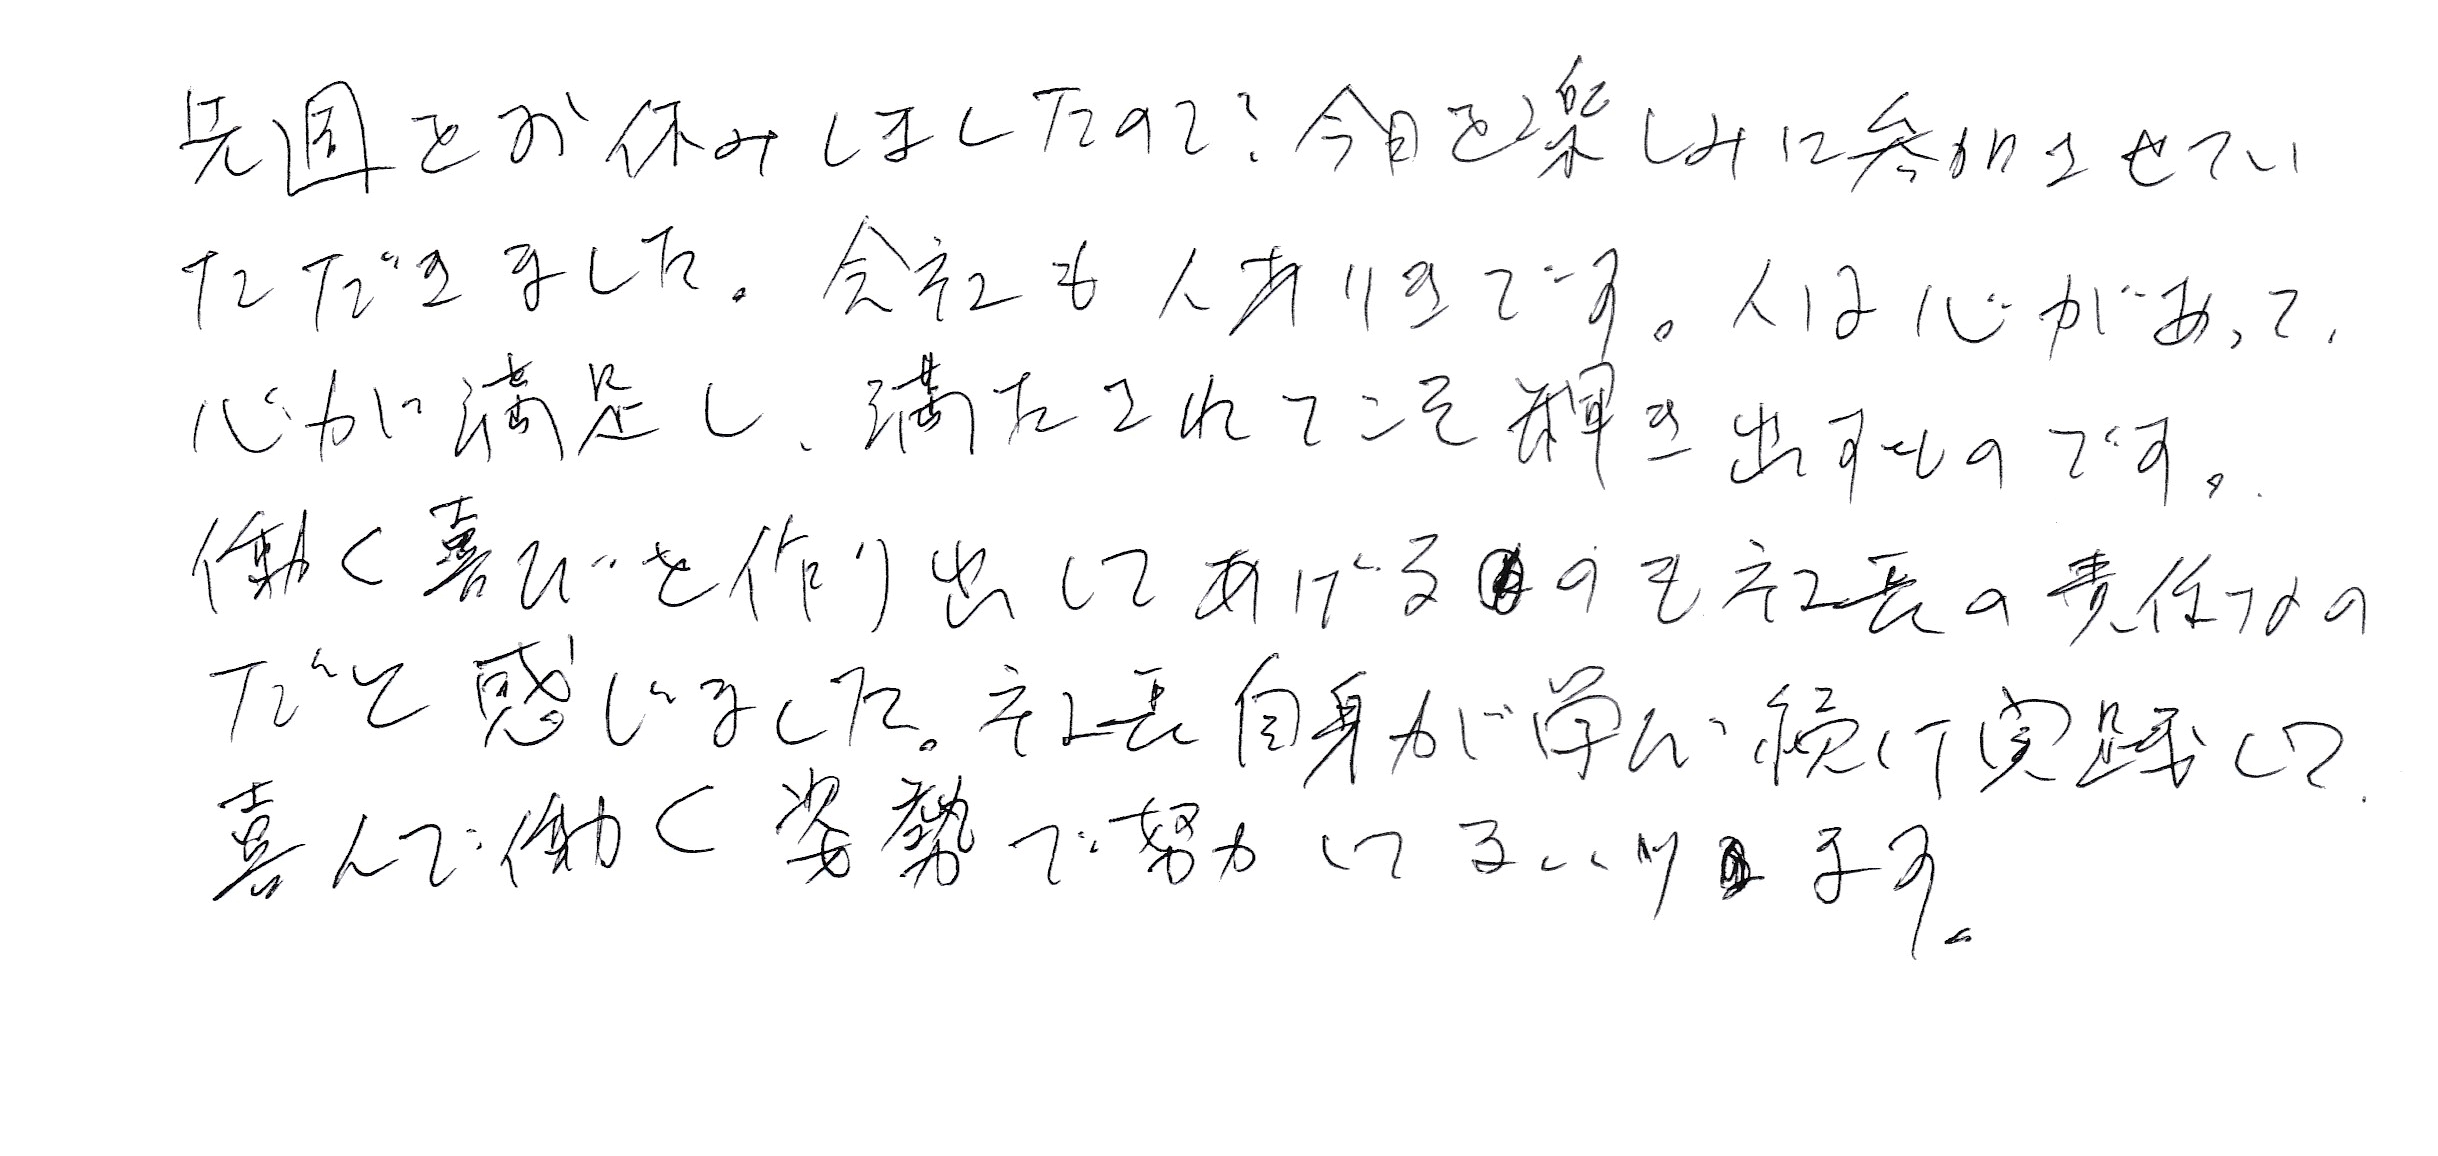 先週をお休みしましたので今日を楽しみに参加させてい
ただきました。会社も人ありきです。人は心があって、
心が満足し、満たされてこそ輝き出すものです。
働く喜びを作り出してあげるのも社長の責任なの
だと感じました。社長自身が学び続け実践して
喜んで働く姿勢で努力してまいります。